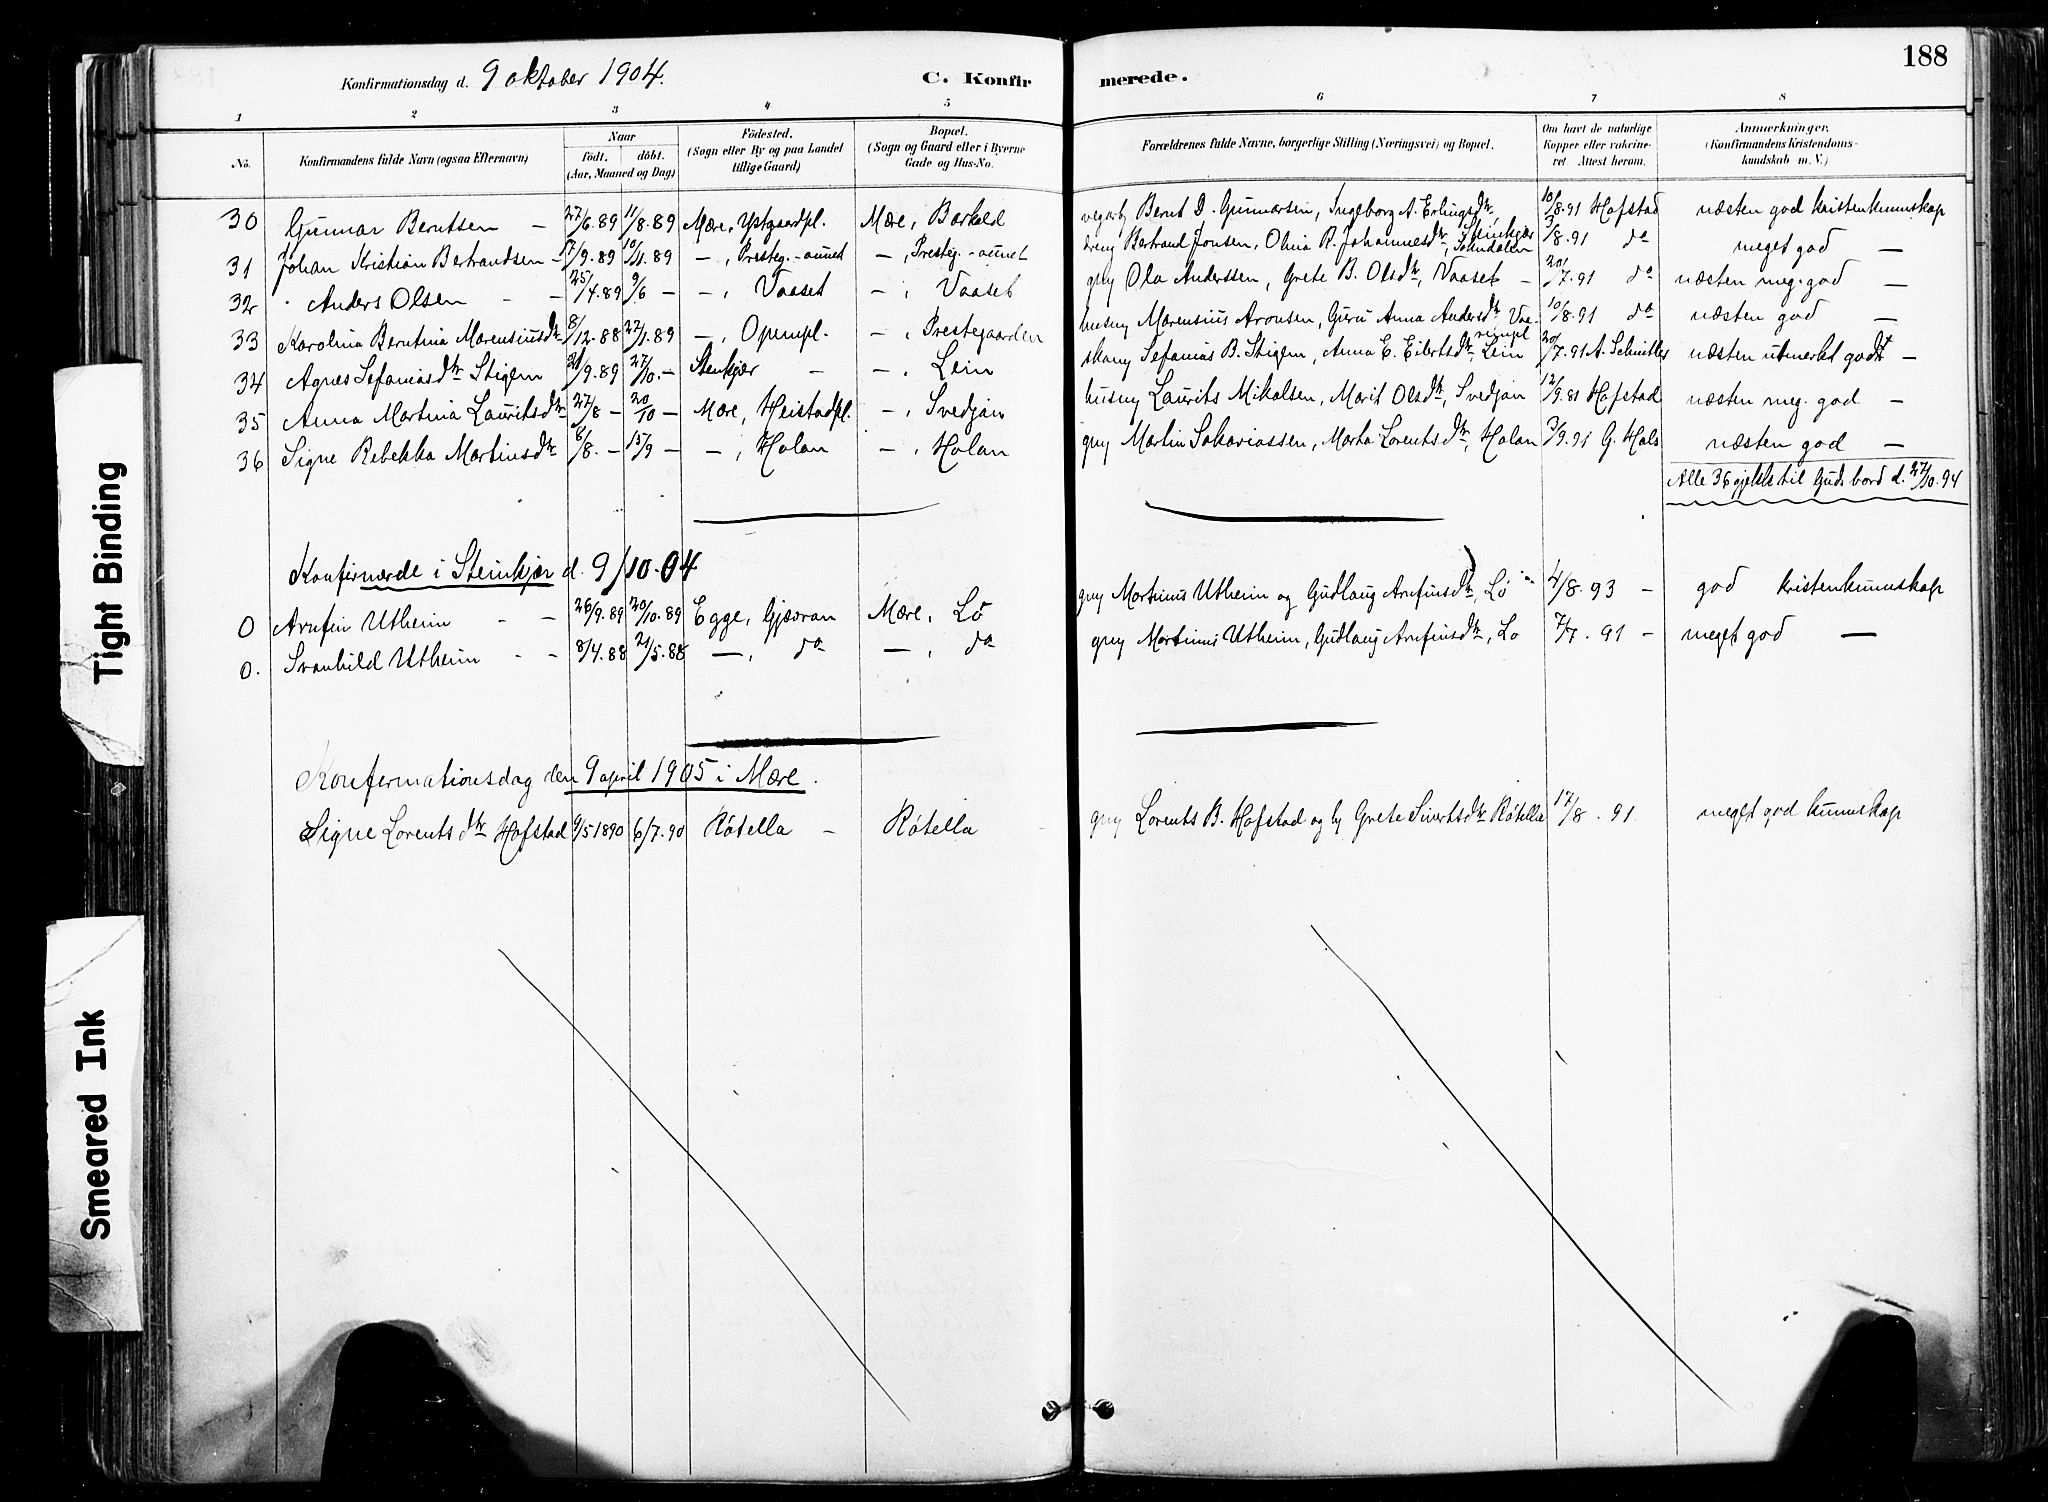 188
Konfirmationsdag d. 9 oktober 1904.
C. Konfirmerede.
1 2 3 4 5 6 7 8
No.
Konfirmandens fulde Navn (ogsaa Efternavn)
Naar
födt. döbt.
(Aar, Maaned og Dag)
Födested.
(Sogn eller By og paa Landet
tillige Gaard)
Bopæl.
(Sogn og Gaard eller i Byerne
Gade og Hus-No.
Forældrenes fulde Navne, borgerlige Stilling (Næringsvei) og Bopæl.
Om havt de naturlige
Kopper eller vakcine-
ret Attest herom.
Anmærkninger.
(Konfirmandens Kristendoms-
kundskab m. V.)
30 Gunnar Berntsen — 27/6.89 11/8.89 Mære, Ystgaardpl. Mære, Barhald vegarb Bernt D. Gunnarsen, Ingeborg A. Erlingsdtr, 10/8.91 Hofstad næsten god kristenkunnskap
31 Johan Kristian Bertrandsen — 17/9.89 10/11.89 —, Presteg.-aunet —, Presteg.-aunet dreng Bertrand Jonsen, Olina R. Johannesdtr, Steinkjær 3/8.91 do meget god —
32 Anders Olsen — — 25/4.89 9/6 — —, Vaaset —, Vaaset grmg Ola Anderssen, Grete B. Olsdtr, Vaaset — 20/7.91 do næsten meg. god —
33 Karolina Berntina Marensiusdtr 8/12.88 27/1.89 —, Openpl. —, Prestegaarden husmg Marensius Aronsen, Guru Anna Andersdtr 10/8.91 do næsten god —
34 Agnes Sefaniasdtr Stigem 21/9.89 27/10.— Steinkjær — —, Lein skomg Sefanias B. Stigem, Anna E. Eilertsdtr, Lein 20/7.91 A. Schnitler næsten utmerket godt —
35 Anna Martina Lauritsdtr 27/8 — 20/10 — Mære, Heistadpl. —, Svedjan husmg Laurits Mikalsen, Marit Olsdtr, Svedjan 12/9.81 Hofstad næsten meg. god —
36 Signe Rebekka Martinsdtr 8/8.— 15/9 — —, Holan —, Holan grmg Martin Sakariassen, Marta Lorentsdtr, Holan 3/9.91 G. Hals næsten god —
Alle 36 gjekk til Guds bord d. 27/10.94
Konfirmerde i Steinkjer d. 9/10.04
0 Arnfin Utheim — — 26/9.89 20/10.89 Egge, Gjævran Mære, Lö grmg Martinus Utheim og Gudlaug Arnfinsdtr, Lö 4/8.93 — god kristenkunnskap
0. Svanhild Utheim — — 8/4.88 21/5.88 —, do —, do grmg Martinus Utheim, Gudlaug Arnfinsdtr, Lo 7/7.91 — meget god —
Konfirmationsdag den 9 april 1905 i Mære.
Signe Lorentsdtr Hofstad 9/5 1890 6/7.90 Rótella — Rótella grmg Lorents B. Hofstad og h Grete Sivertsdtr Rótella 17/8.91. meget god kunnskap
Tight Binding
Smeared Ink